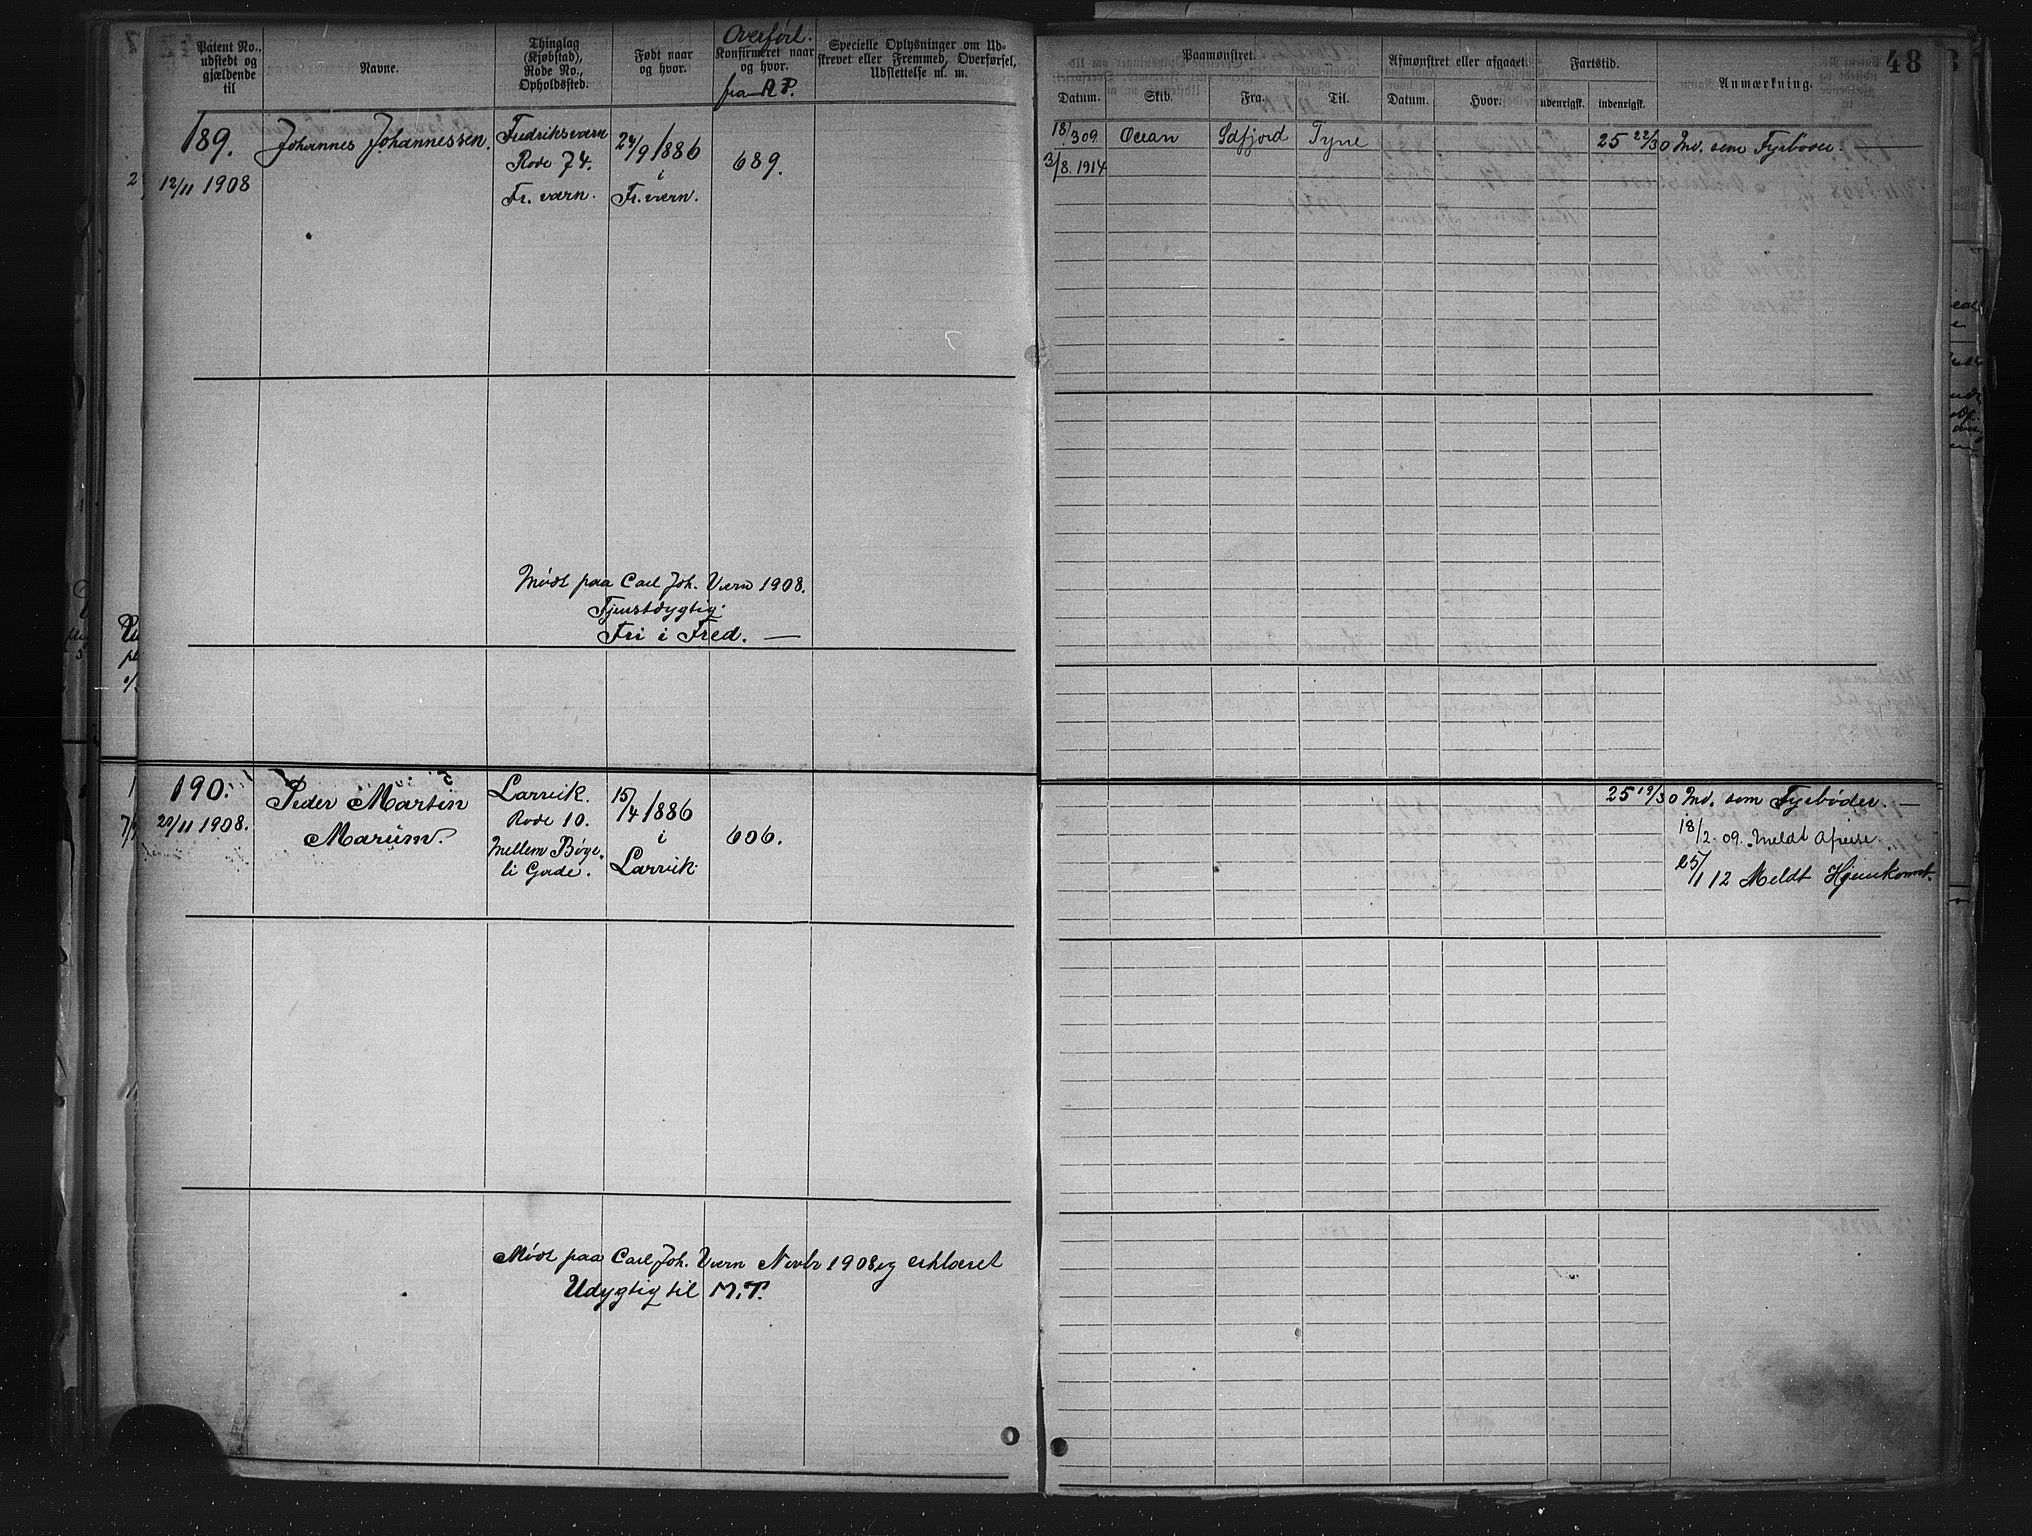 Patent No., udstedt og gjældende til
Navne.
Thinglag (Kjøbstad), Rode No., Opholdssted.
Født naar og hvor.
Overført.
Konfirmeret naar og hvor.
fra A P.
Specielle Oplysninger om Udskrevet eller Fremmed, Overførsel, Udslettelse m. m.
Paamønstret.
Datum.
Skib.
Fra.
Til.
Afmønstret eller afgaaet.
Datum.
Hvor.
Fartstid.
udenrigsk.
indenrigsk.
Anmærkning.
48
189.
12/11 1908
Johannes Johannessen.
Fredriksværn
Rode 74.
Fr. værn.
24/9 1886
i
Fr. værn.
689.
18/3 09
Ocean
Tyne
25 22/30 Md. som Fyrbøder.
3/8. 1914
Mødt paa Carl Joh. Værn 1908.
Tjenstdygtig.
Fri i Fred. —
190.
20/11 1908.
Peder Martin
Marum.
Larvik.
Rode 10.
Mellem Bøge-
li Gade.
15/4 1886
i
Larvik
606.
25 19/30 Md. som Fyrbøder. —
18/2 09. Meldt Afreise.
25/1 12 Meldt Hjemkomst.
Mødt paa Carl Joh. Værn Novbr 1908 og erklæret
Udygtig til M.T.